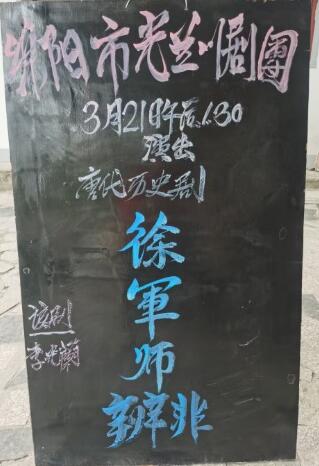 阳市光兰剧團
3月21日午后1:30
演出
唐代历史剧
徐軍师
辨非
该剧
李光蘭